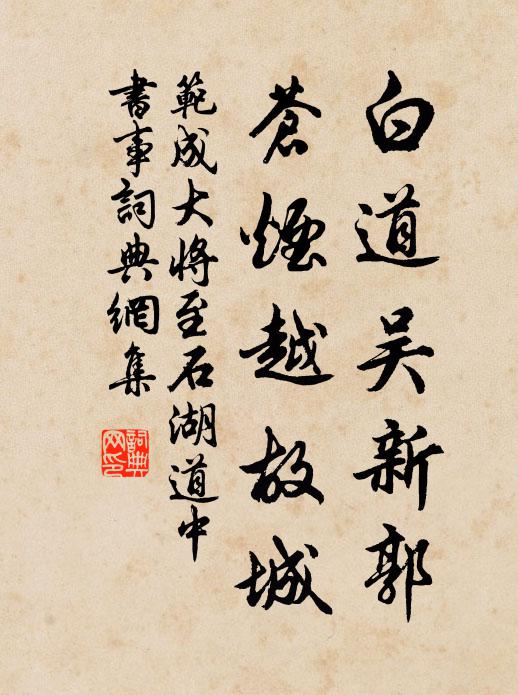 白道吳新郭
蒼煙越故城
範成大將至石湖道中
書事詞典網集
詞典网印